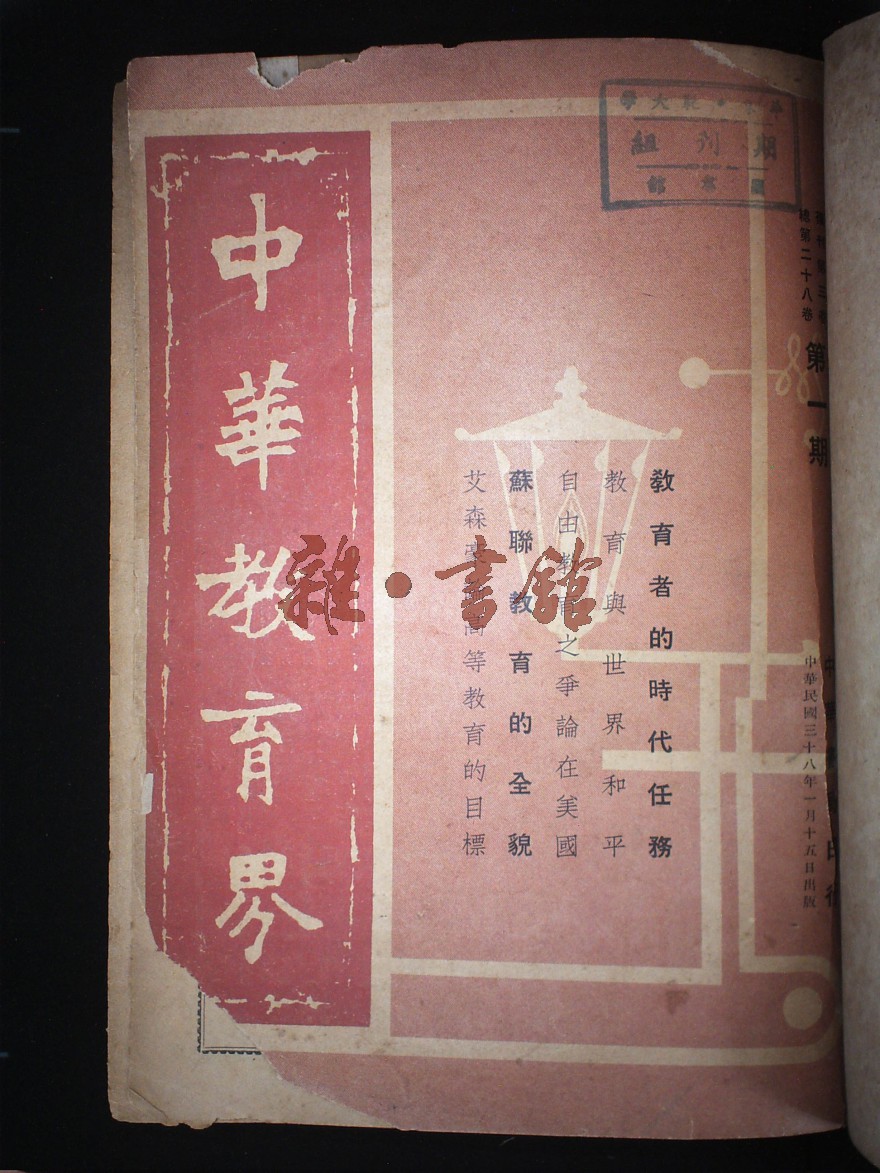 中華教育界
期刊組
總第二十八卷
第一期
教育者的時代任務
教育與世界和平
自由教育之爭論在美國
蘇聯教育的全貌
艾森豪 高等教育的目標
中華民國三十八年一月十五日出版
雜·書館